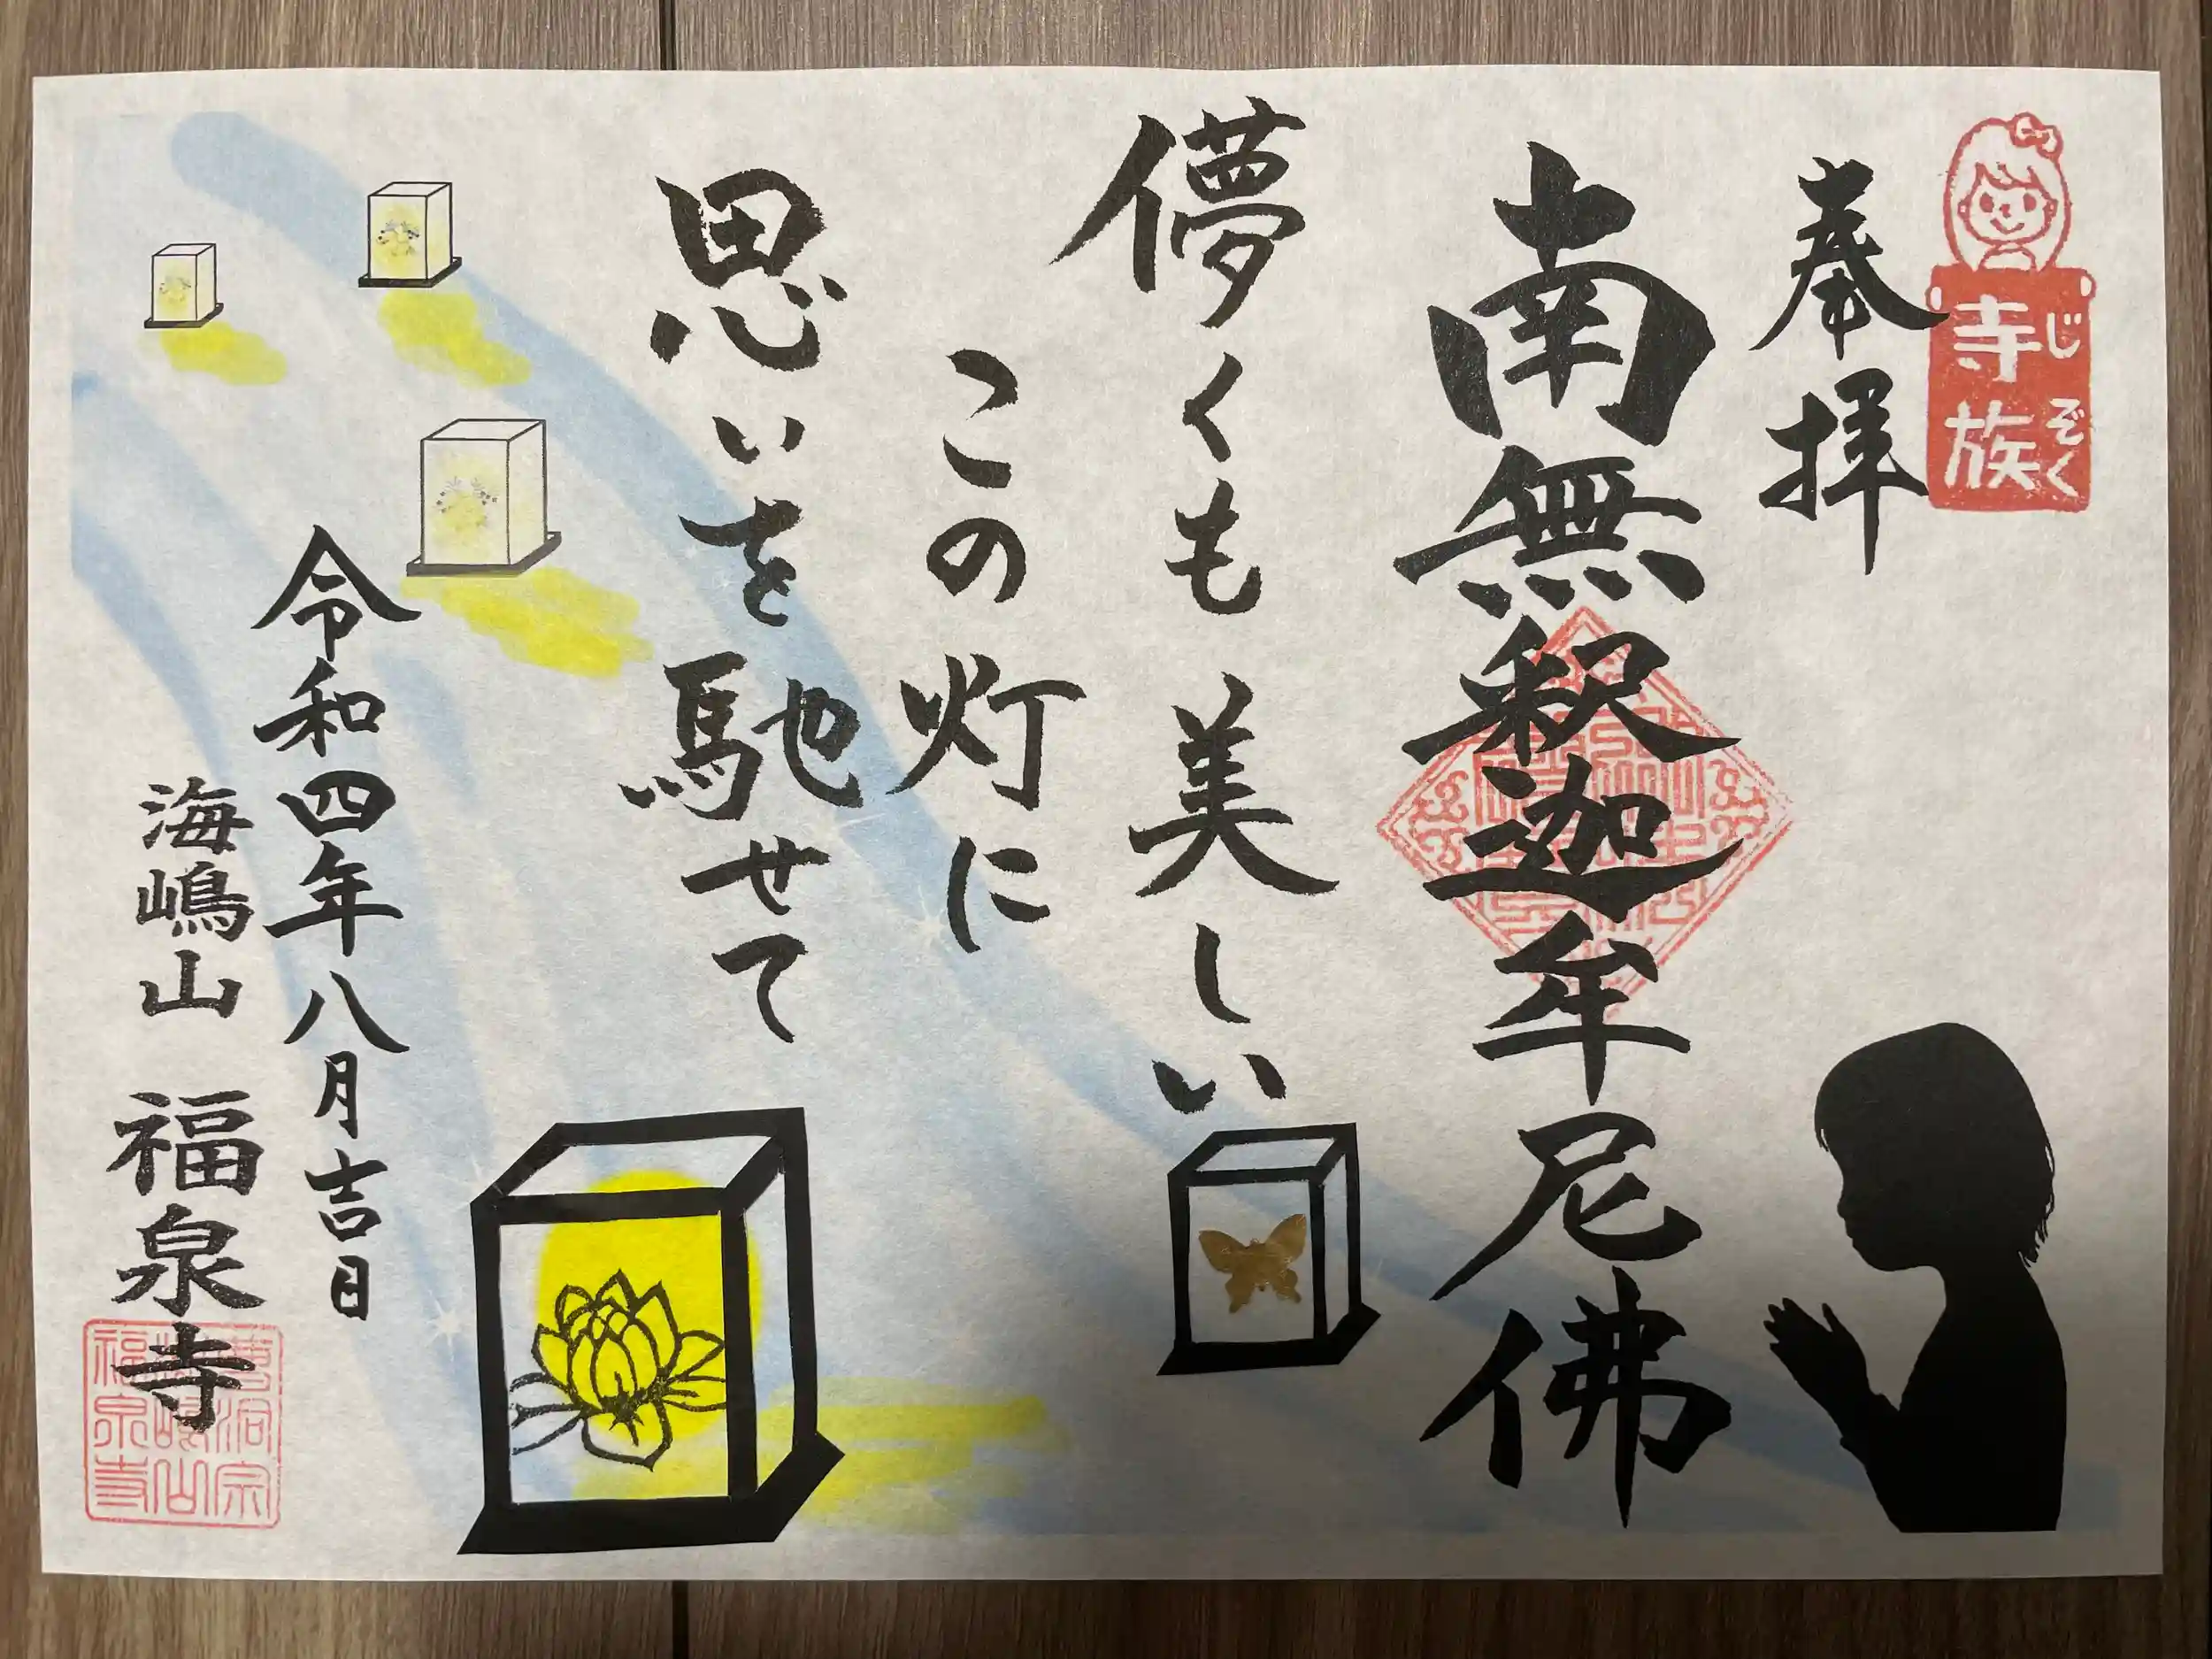 寺族
じぞく
奉拝
南無釈迦牟尼佛
儚くも美しい
この灯に
思いを馳せて
令和四年八月吉日
海嶋山 福泉寺
曹洞宗
海嶋山
福泉寺